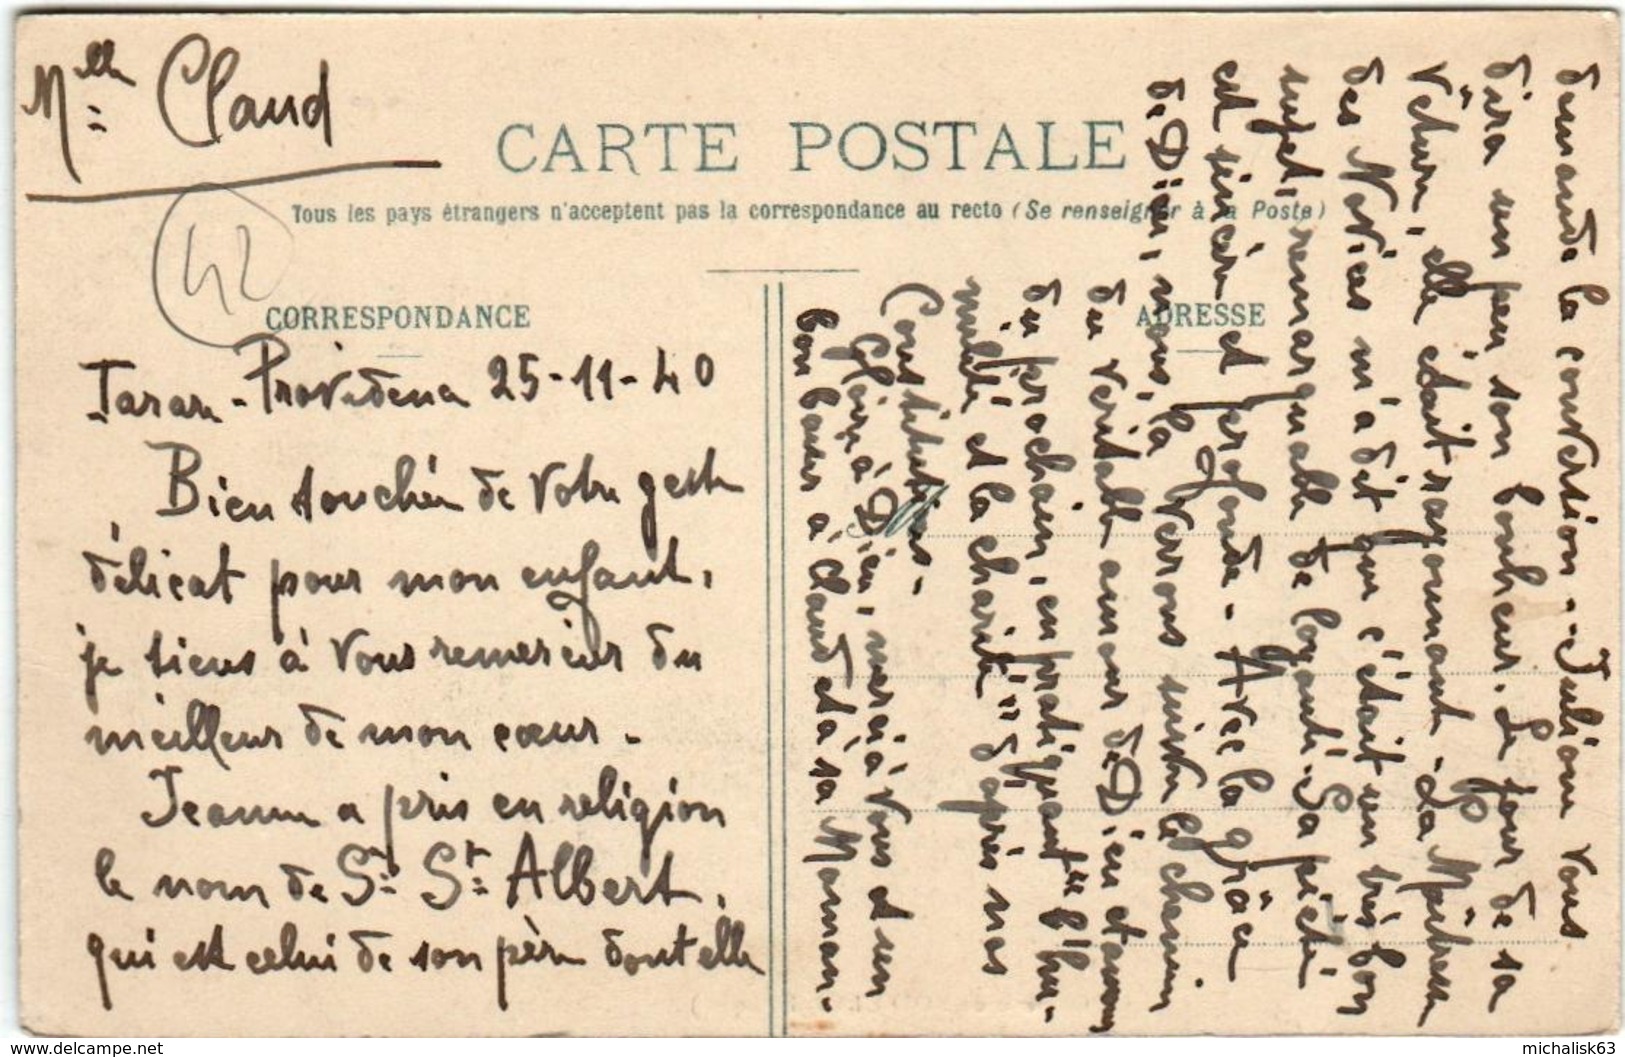 Mlle Claud
CARTE POSTALE
Tous les pays étrangers n'acceptent pas la correspondance au recto (Se renseigner à la Poste)
42
CORRESPONDANCE
ADRESSE
Tarare - Providence 25-11-40
Bien touchée de votre geste
délicat pour mon enfant,
je tiens à vous remercier du
meilleur de mon cœur.
Jeanne a pris en religion
le nom de Sr St Albert,
qui est celui de son père dont elle
demande la conversion. - Julienne vous
dira un peu son bonheur. Le jour de sa
"Vêture, elle était rayonnante. - La Maîtresse
des Novices m'a dit que c'était un très bon
sujet, remarquable de loyauté. Sa piété
est sincère et profonde. - Avec la grâce
de Dieu, nous la verrons suivre le chemin
du véritable amour de Dieu et amour
du prochain, en pratiquant "l'hu-
milité et la charité" d'après nos
Constitutions. -
Gloire à Dieu, merci à vous et un
bon baiser à Claud et à sa Maman. -
delcampe.net
michalisk63